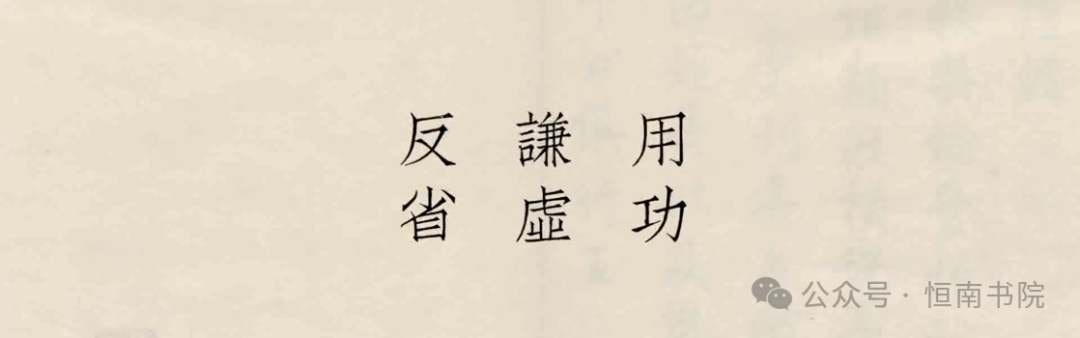 用功
謙虛
反省
公众号 · 恒南书院